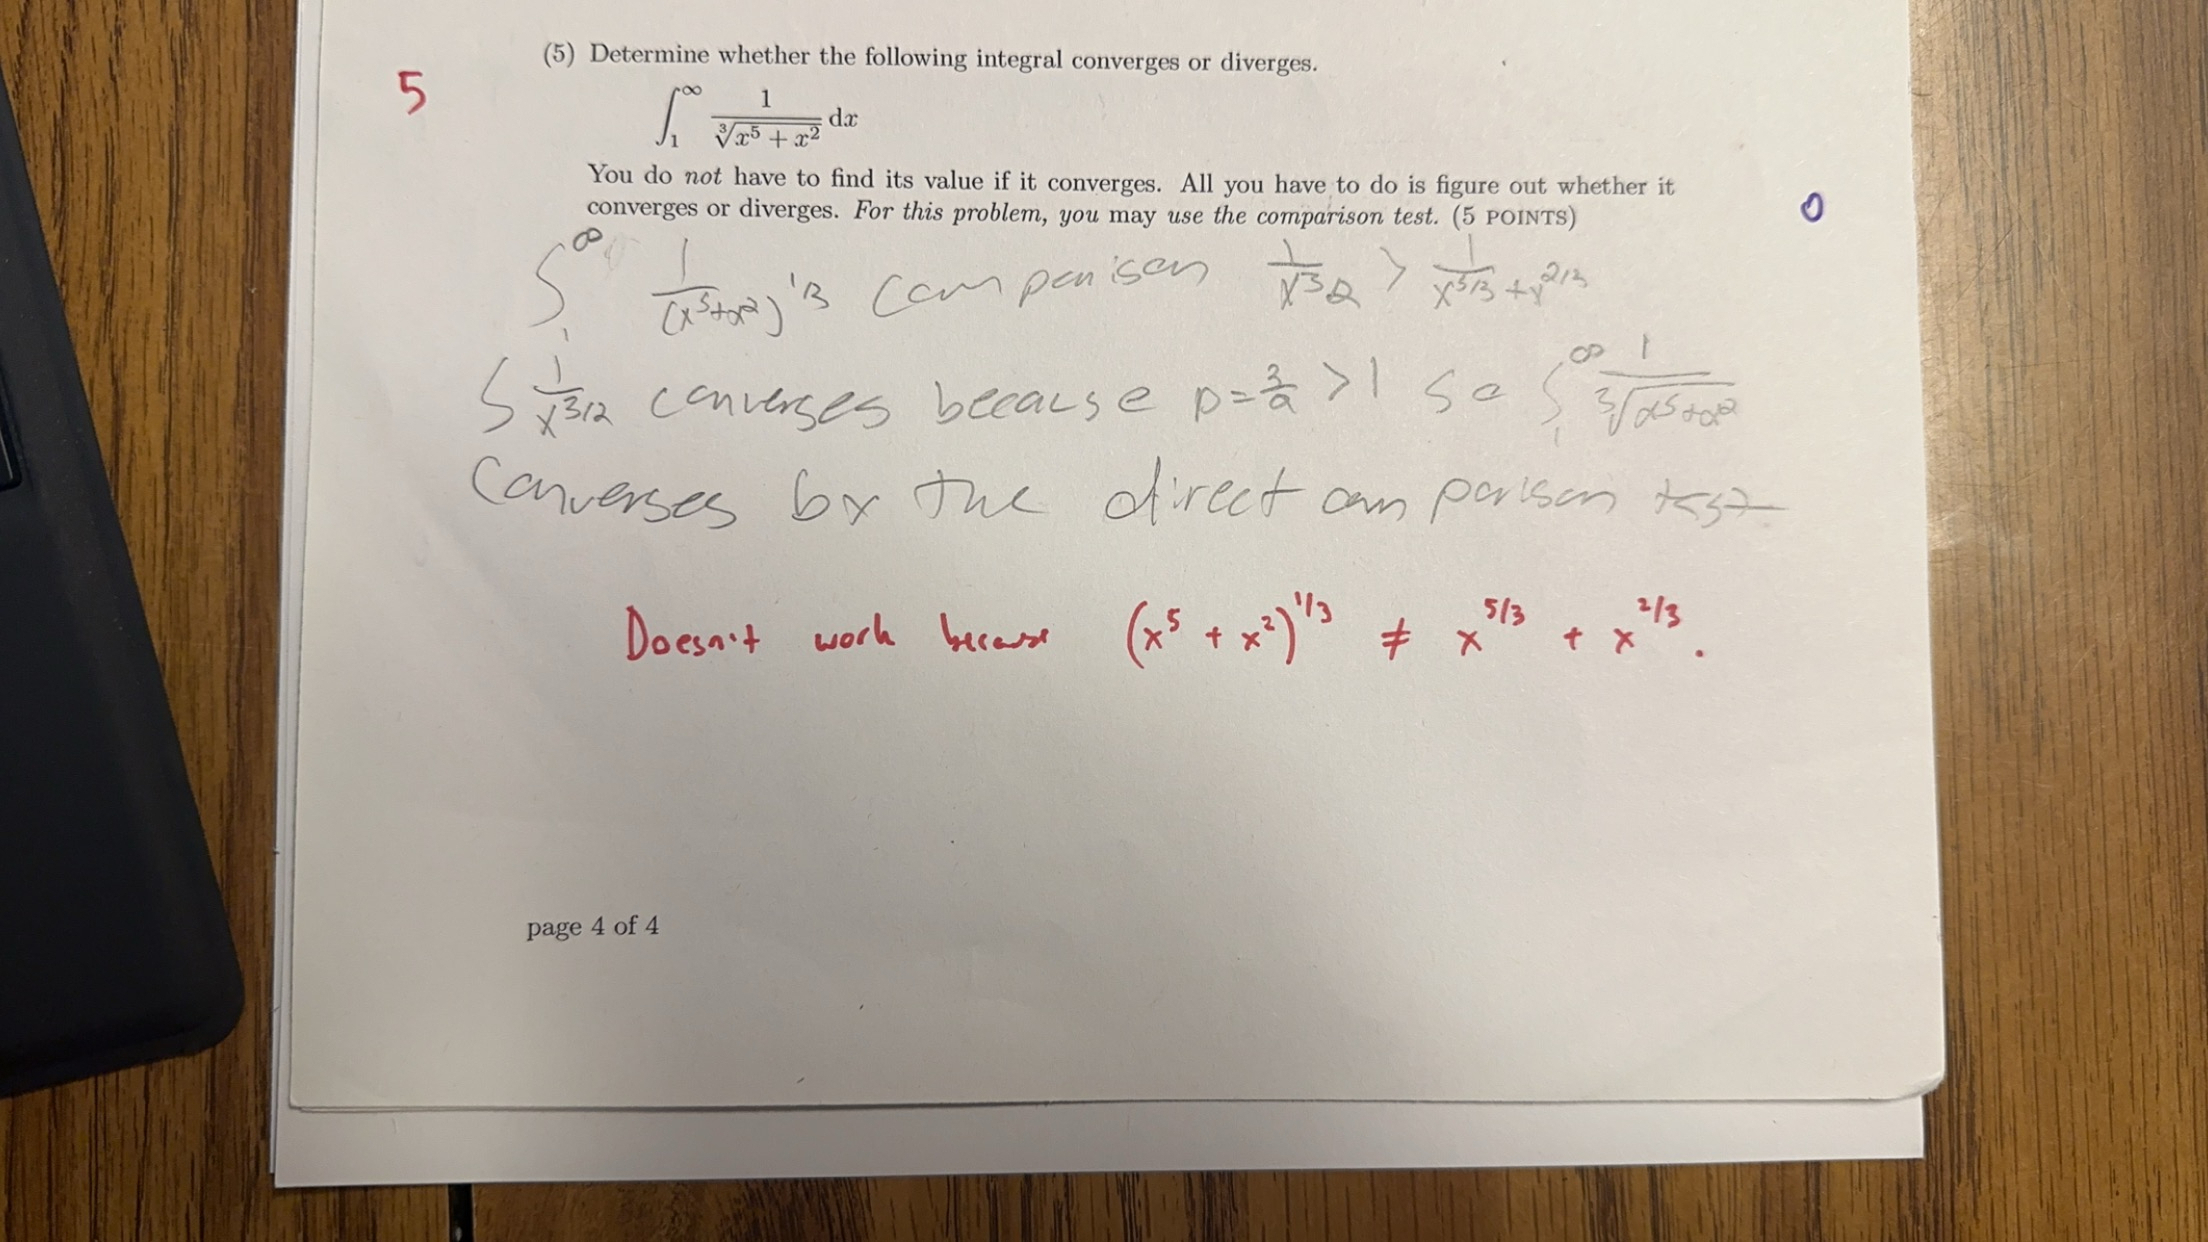 (5) Determine whether the following integral converges or diverges.
5
∫₁^∞ 1/∛(x⁵ + x²) dx
You do not have to find its value if it converges. All you have to do is figure out whether it
converges or diverges. For this problem, you may use the comparison test. (5 POINTS)
0
∫₁^∞ 1/(x⁵+x²)^1/3 comparison 1/x^3/2 > 1/x^5/3 + x^2/3
∫ 1/x^3/2 converges because p = 3/2 > 1 so ∫₁^∞ 1/∛(x⁵+x²)
converges by the direct comparison test
Doesn't work because (x⁵ + x²)^1/3 ≠ x^5/3 + x^2/3.
page 4 of 4